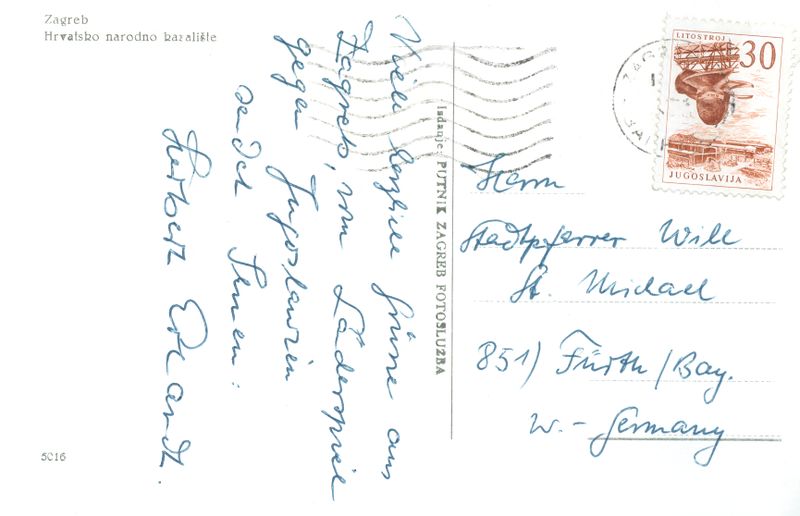 Zagreb
Hrvatsko narodno kazalište
Viele herzliche Grüsse aus
Zagreb, vom Länderspiel
gegen Jugoslawien
sendet Ihnen:
Herbert Erhardt.
5016
Izdanje: PUTNIK ZAGREB FOTOSLUŽBA
LITOSTROJ
30
JUGOSLAVIJA
ZAGREB
Herrn
Stadtpfarrer Will
St. Michael
851) Fürth / Bay.
W.- Germany